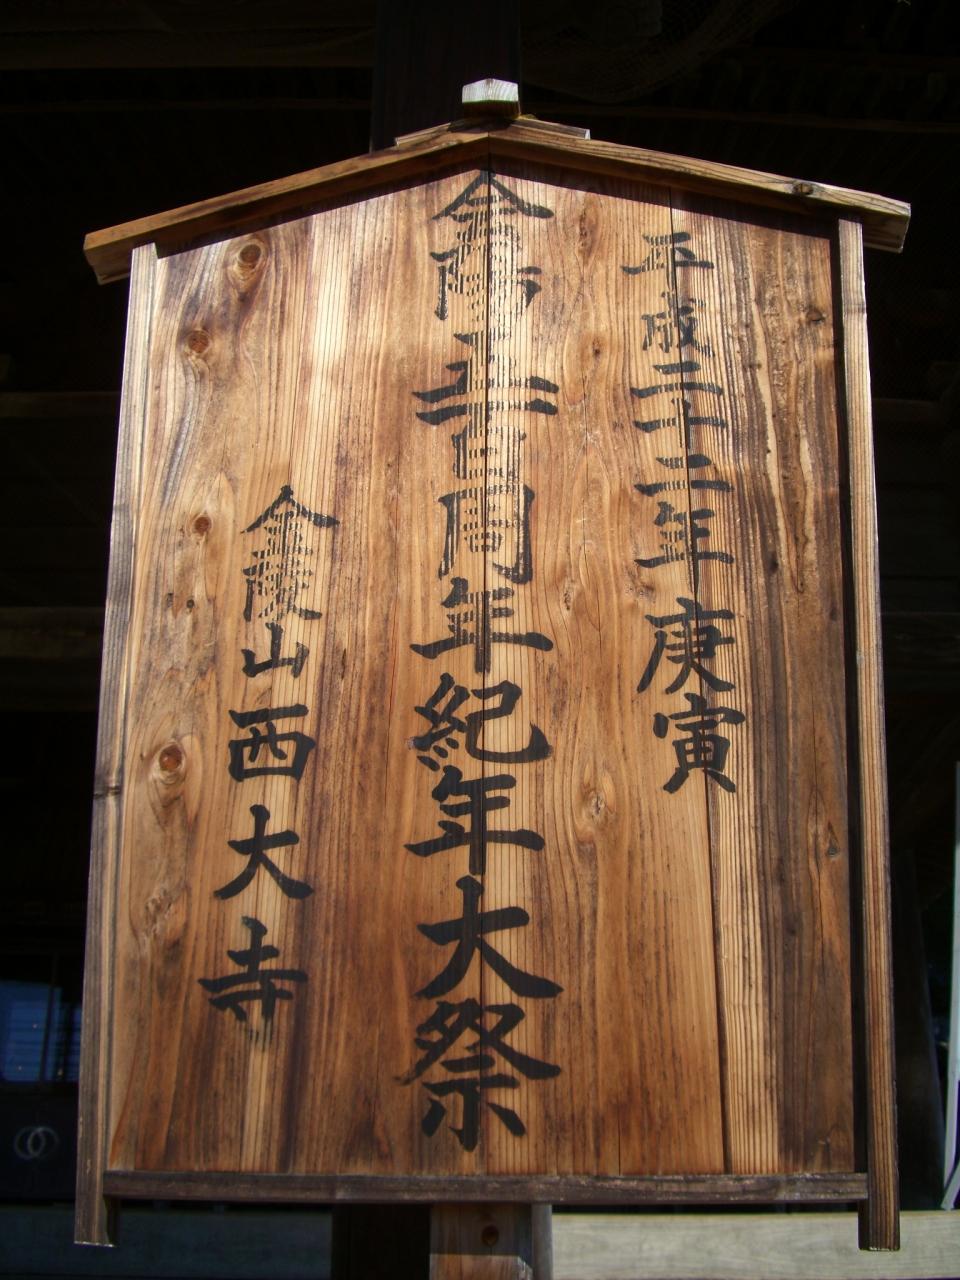 平成二十二年 庚寅
会陽五百周年紀年大祭
金陵山西大寺